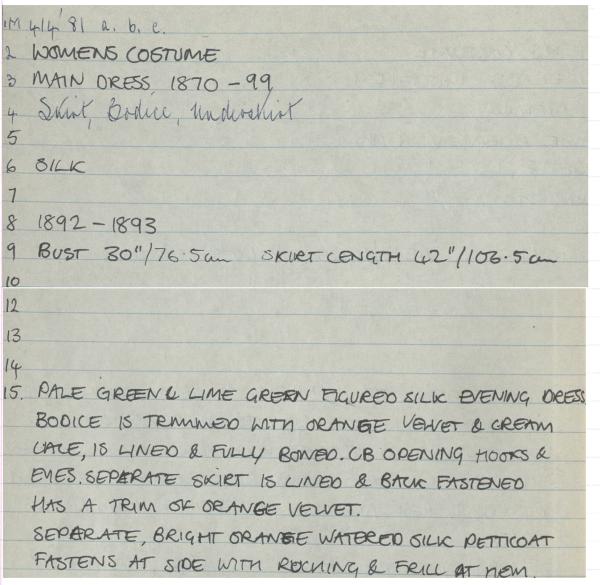 1M 414'81 a. b. c.
2 WOMENS COSTUME
3 MAIN DRESS, 1870 - 99
4 Skirt, Bodice, underskirt
5
6 SILK
7
8 1892 - 1893
9 BUST 30"/76.5cm SKIRT LENGTH 42"/106.5cm
10
12
13
14
15. PALE GREEN & LIME GREEN FIGURED SILK EVENING DRESS
BODICE IS TRIMMED WITH ORANGE VELVET & CREAM
LACE, IS LINED & FULLY BONED. CB OPENING HOOKS &
EYES. SEPARATE SKIRT IS LINED & BACK FASTENED
HAS A TRIM OF ORANGE VELVET.
SEPARATE, BRIGHT ORANGE WATERED SILK PETTICOAT
FASTENS AT SIDE WITH RUCHING & FRILL AT HEM.